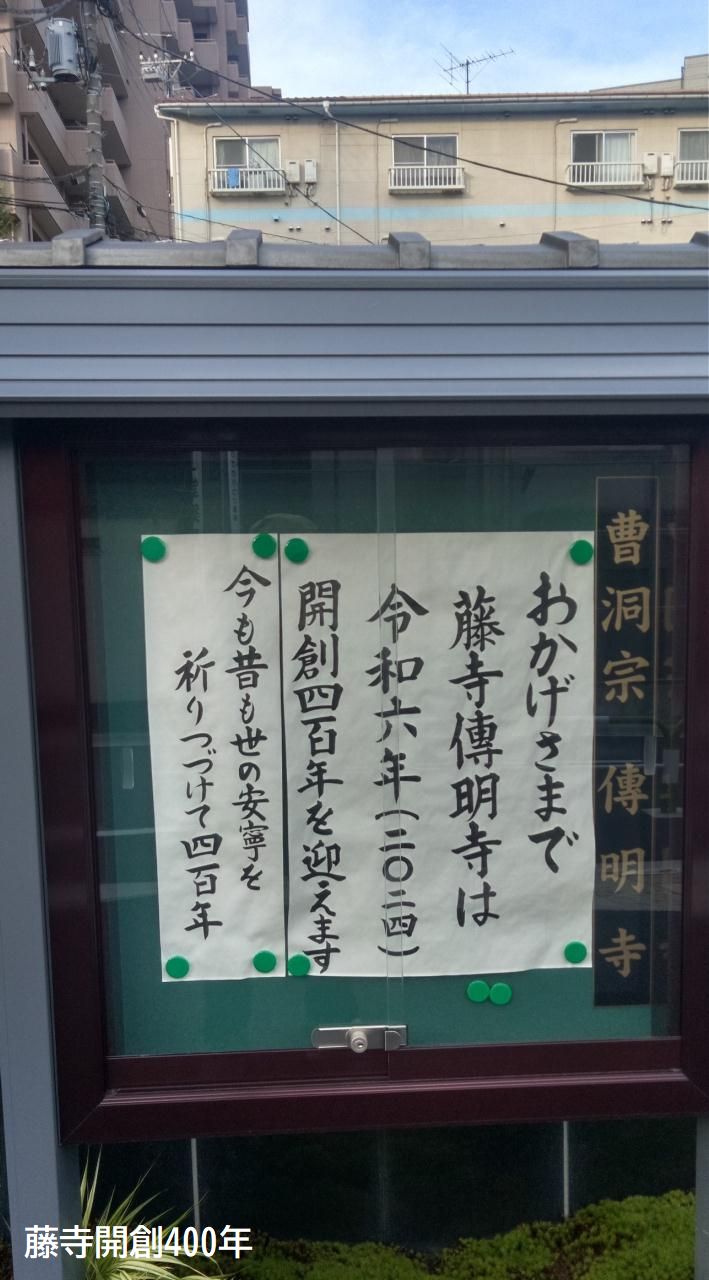 曹洞宗 傳明寺
おかげさまで
藤寺傳明寺は
令和六年(二〇二四)
開創四百年を迎えます
今も昔も世の安寧を
祈りつづけて四百年
藤寺開創400年